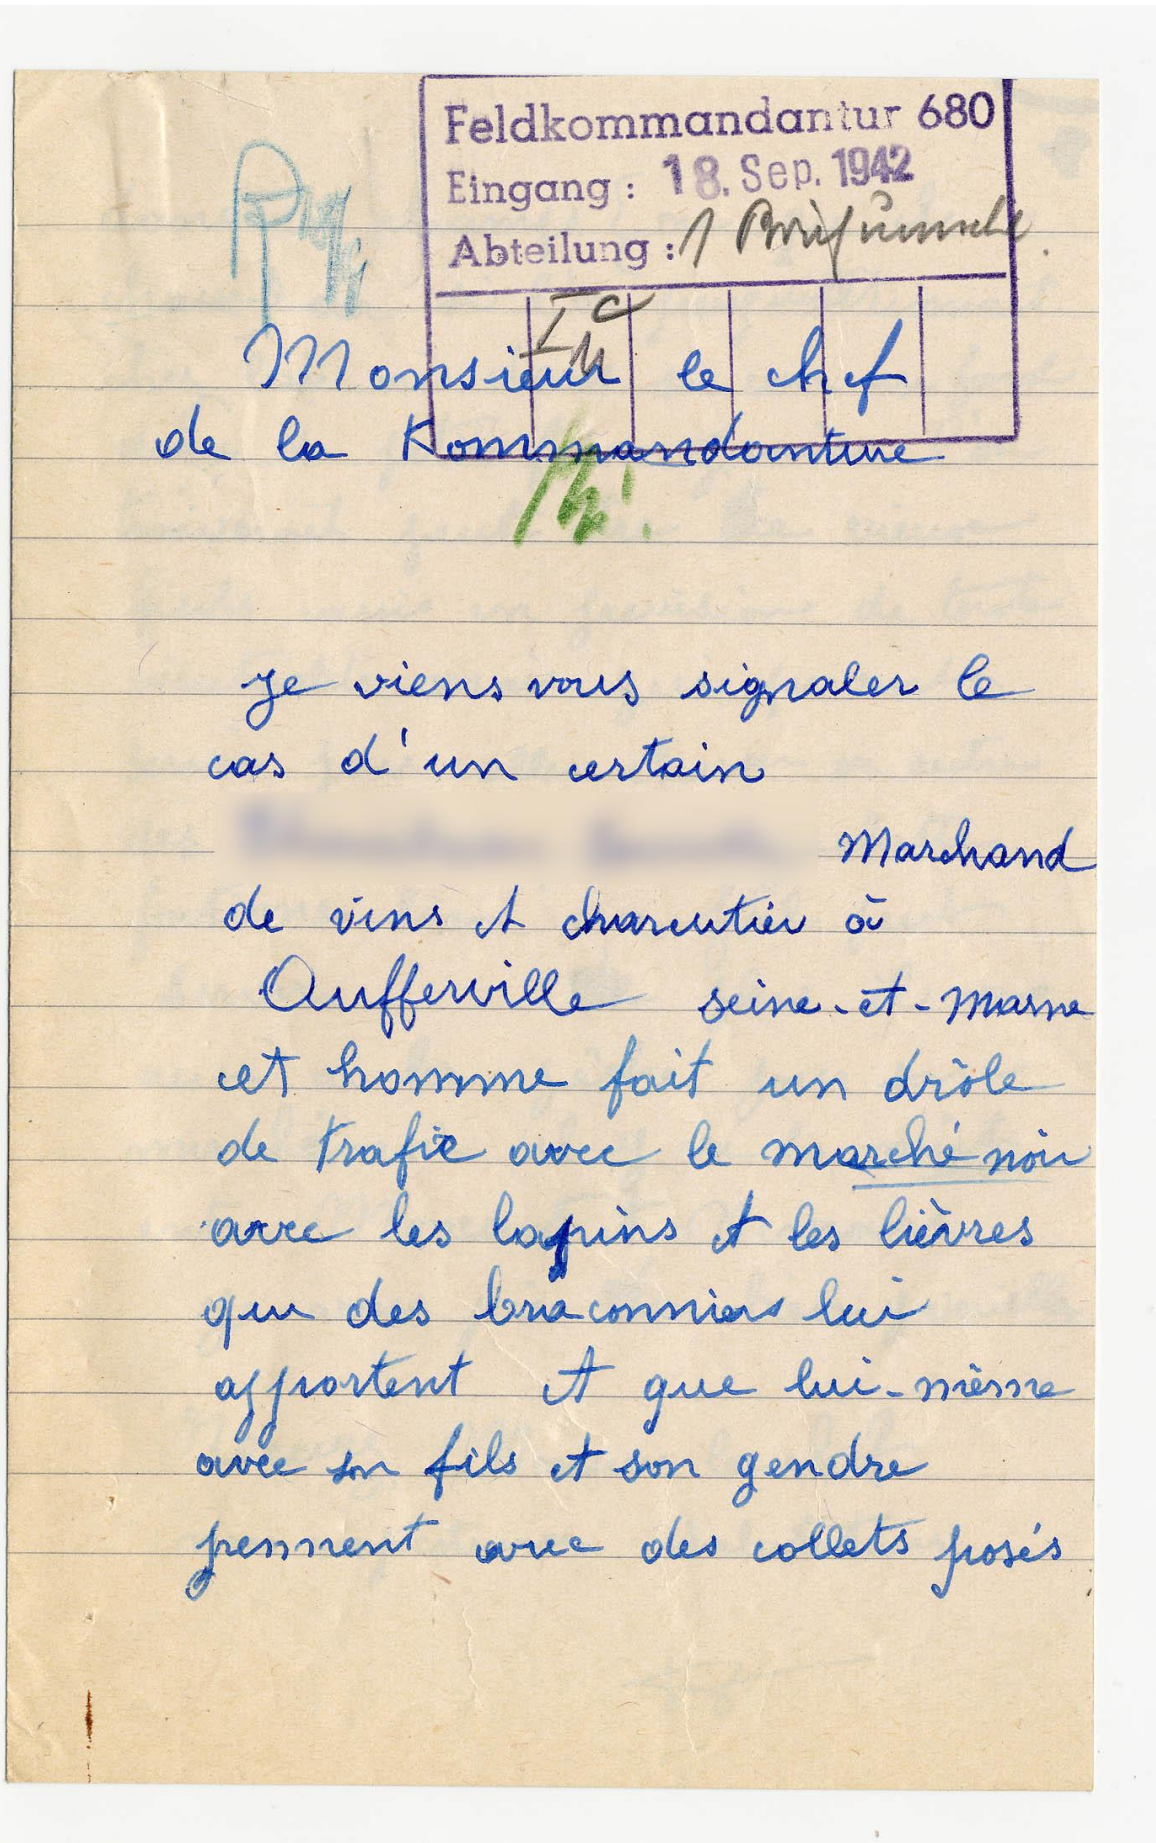 Feldkommandantur 680
Eingang : 18. Sep. 1942
Abteilung : 1
Ic
Monsieur le chef
de la Kommandanture
Je viens vous signaler le
cas d'un certain
Marchand
de vins et charcutier à
Aufferville seine-et-marne
cet homme fait un drôle
de trafic avec le marché noir
avec les lapins et les lièvres
que des braconniers lui
apportent et que lui-même
avec son fils et son gendre
pennent avec des collets posés